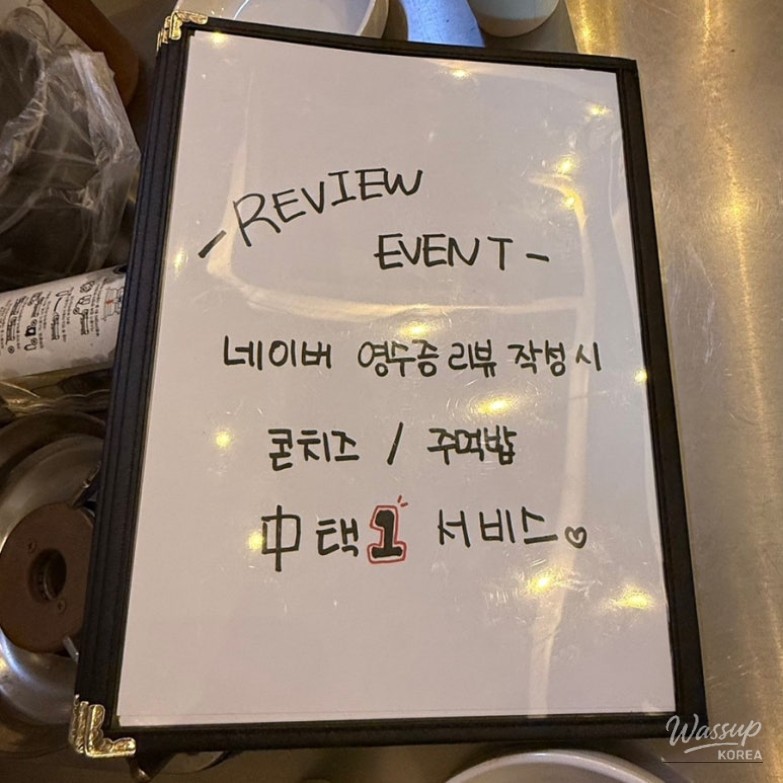 - REVIEW
EVENT -
네이버 영수증 리뷰 작성 시
콘치즈 / 주먹밥
中 택 1 서비스♡
Wassup
KOREA